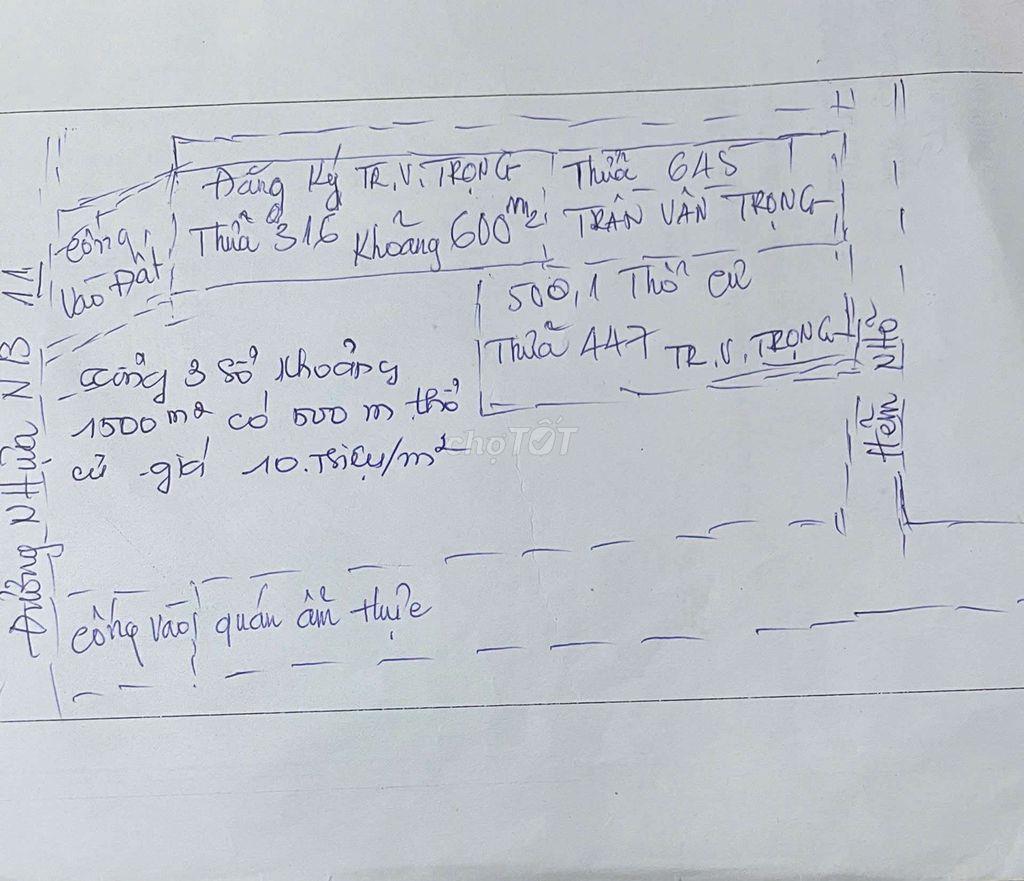 Đăng Ký TR.V.TRỌNG
Thửa 316 Khoảng 600m2
Thửa 645
TRẦN VĂN TRỌNG
Cổng
Vào Đất
500,1 Thổ Cư
Thửa 447 TR.V.TRỌNG
Cổng 3 Sổ Khoảng
1500m2 có 500m thổ
cư giá 10.Triệu/m2
chợTỐT
Đường NHựa NB 11
Hẻm NHỏ
Cổng vào quán ẩm thực